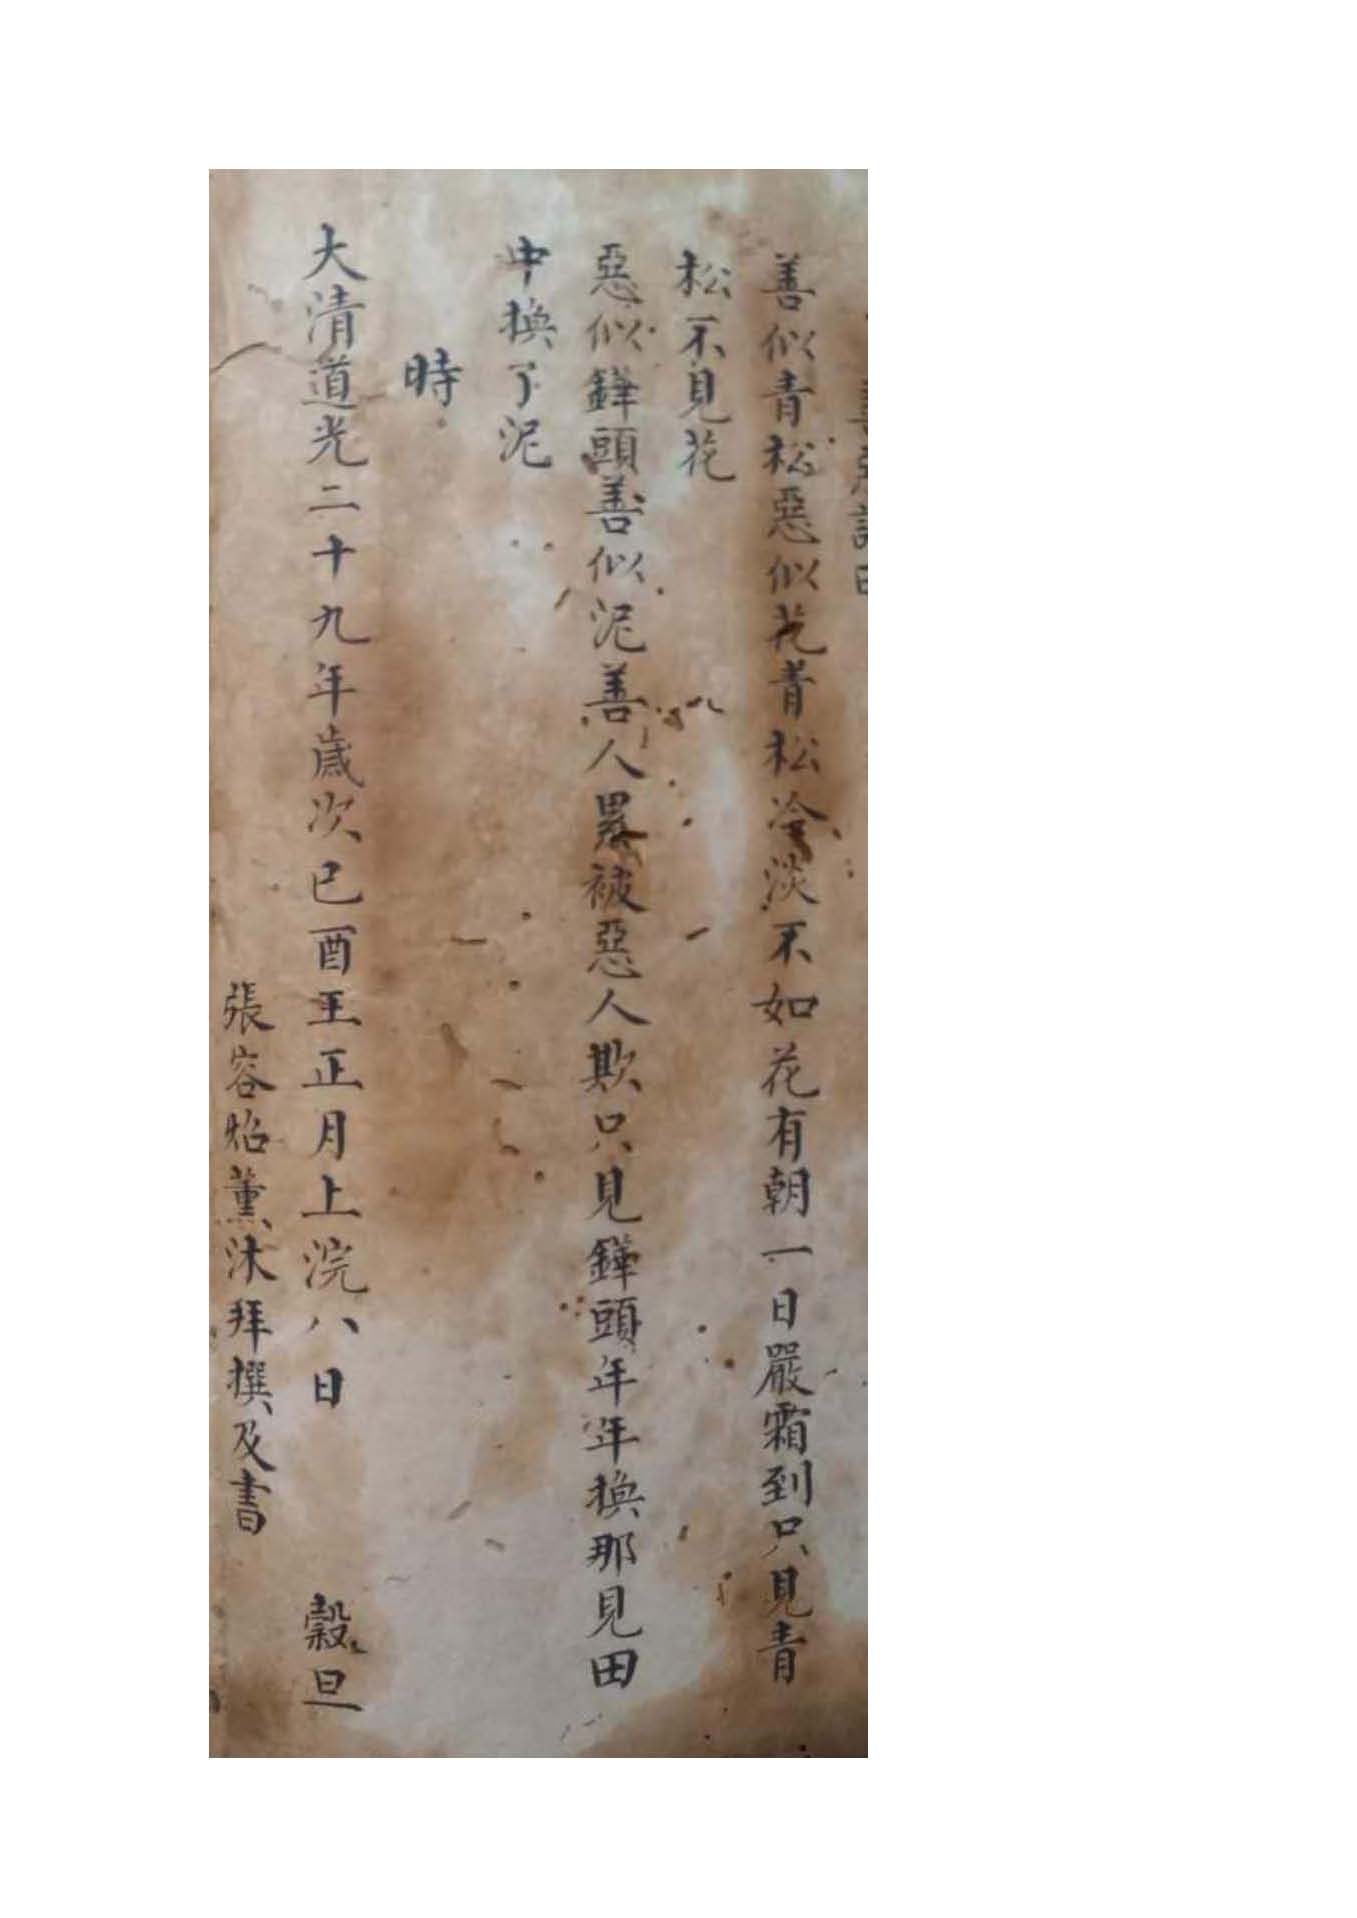 善惡詩曰
善似青松惡似花青松冷淡不如花有朝一日嚴霜到只見青
松不見花
惡似鏵頭善似泥善人累被惡人欺只見鏵頭年年換那見田
中換了泥
時
大清道光二十九年歲次己酉王正月上浣八日 穀旦
張容炤薰沐拜撰及書